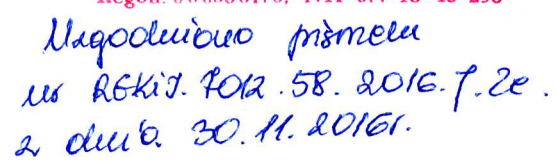 Uzgodniono pismem
nr REKiJ.7012.58.2016.J.Ze.
z dnia 30.11.2016r.